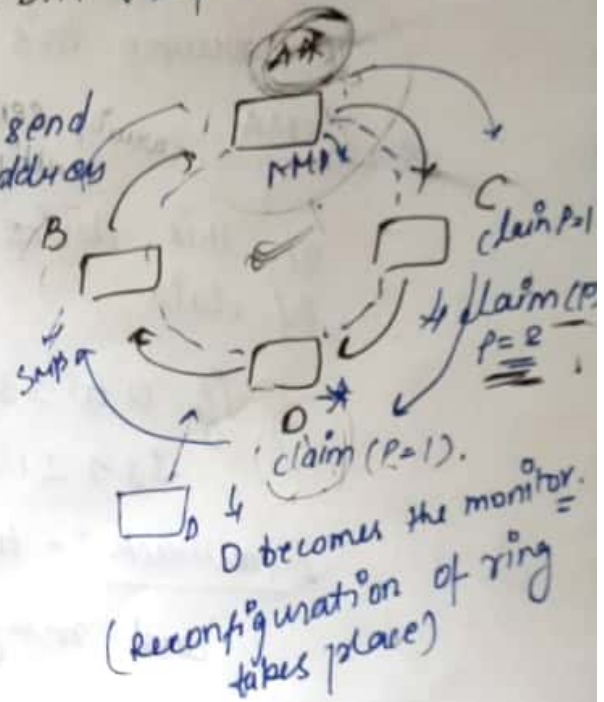 send
B
C
claim P=1
claim (P
P = 2
D
claim (P=1).
D
D becomes the monitor.
(Reconfiguration of ring
takes place)